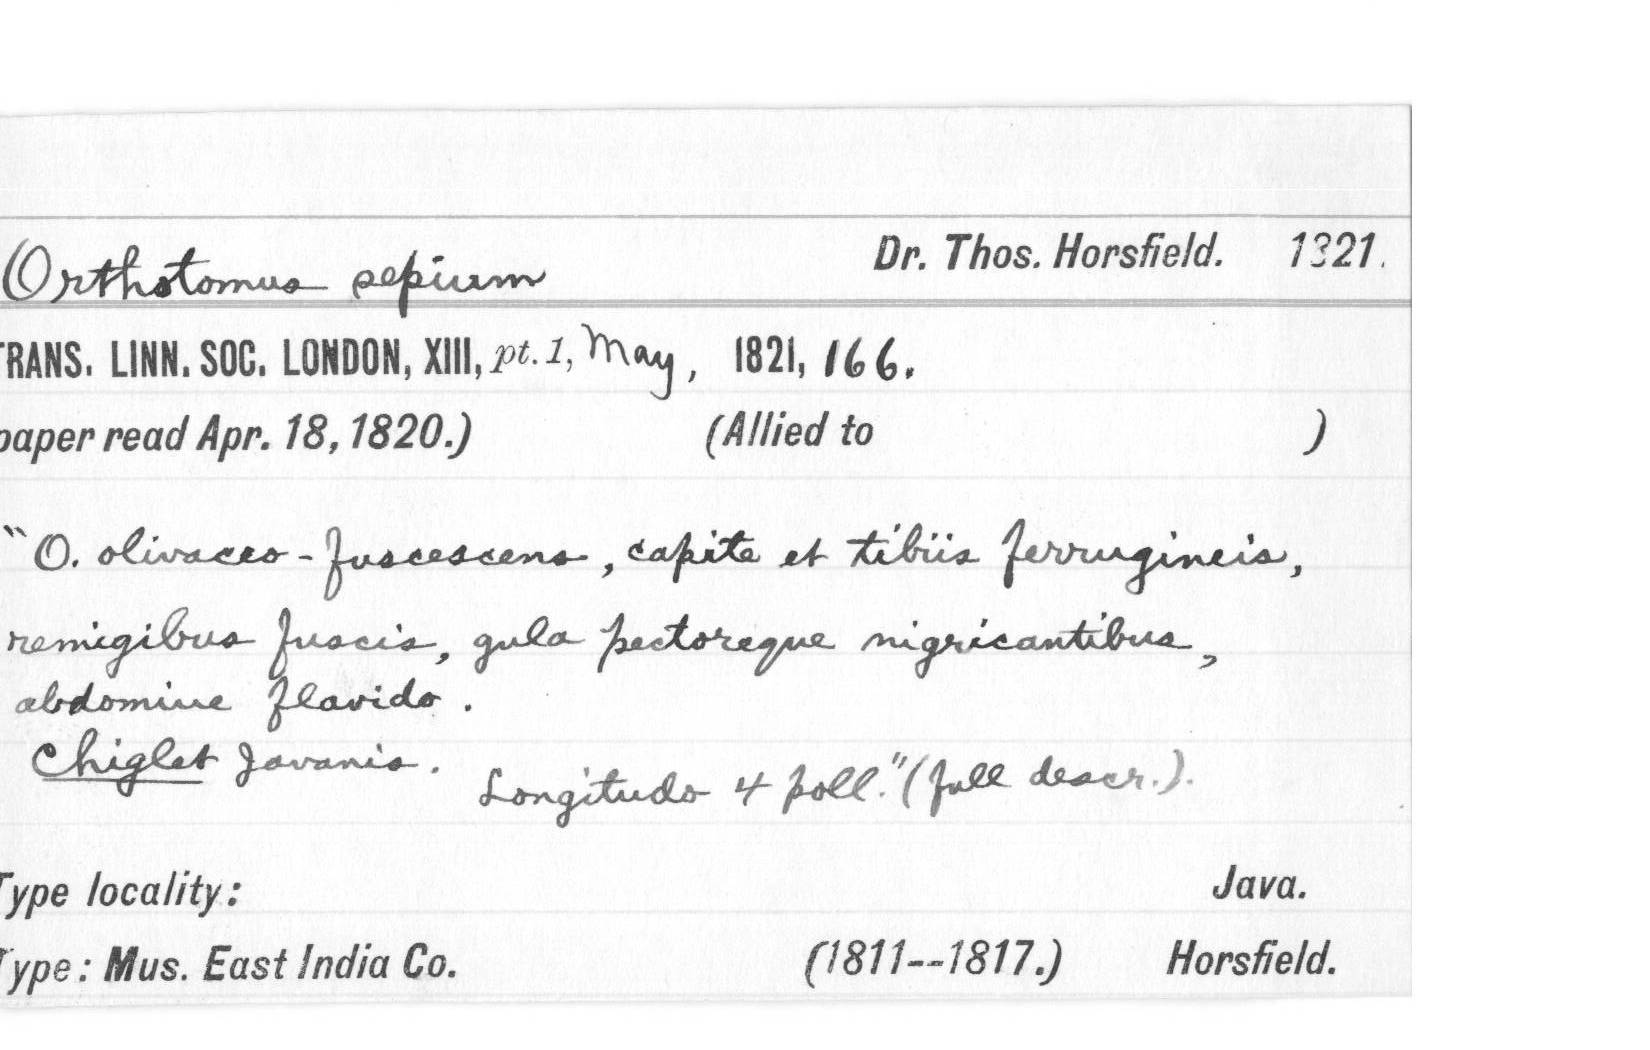 Orthotomus sepium Dr. Thos. Horsfield. 1821.
TRANS. LINN. SOC. LONDON, XIII, pt. 1, May, 1821, 166.
paper read Apr. 18, 1820.) (Allied to )
"O. olivaceo-fuscescens, capite et tibiis ferrugineis,
remigibus fuscis, gula pectoreque nigricantibus,
abdomine flavido.
Chiglet Javanis. Longitudo 4 poll." (full descr.).
Type locality: Java.
Type: Mus. East India Co. (1811--1817.) Horsfield.